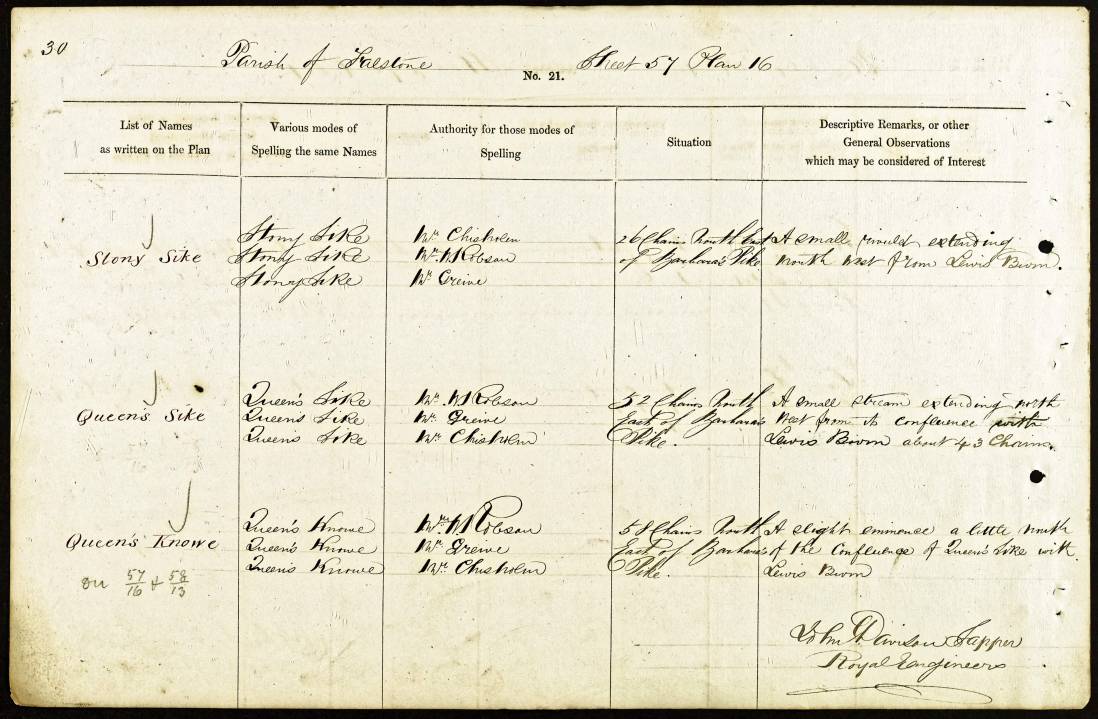 30
Parish of Falstone
No. 21.
Sheet 57 Plan 16
List of Names
as written on the Plan
Various modes of
Spelling the same Names
Authority for those modes of
Spelling
Situation
Descriptive Remarks, or other
General Observations
which may be considered of Interest
Stony Sike
Stony Sike
Stony Sike
Stony Sike
Mr. Chisholm
Mr. W Robson
Mr. Greive
26 Chains North East
of Barbara's Pike.
A small rivulet extending
North West from Lewis Burn.
Queen's Sike
Queen's Sike
Queen's Sike
Queen's Sike
Mr. W Robson
Mr. Greive
Mr. Chisholm
52 Chains North
East of Barbara's
Pike.
A small stream extending north
West from its confluence with
Lewis Burn about 43 Chains.
Queen's Knowe
on 57/16 & 58/13
Queen's Knowe
Queen's Knowe
Queen's Knowe
Mr. W Robson
Mr. Greive
Mr. Chisholm
58 Chains North
East of Barbara's
Pike.
A slight eminence a little north
of the Confluence of Queen's Sike with
Lewis Burn
John Davison Sapper
Royal Engineers